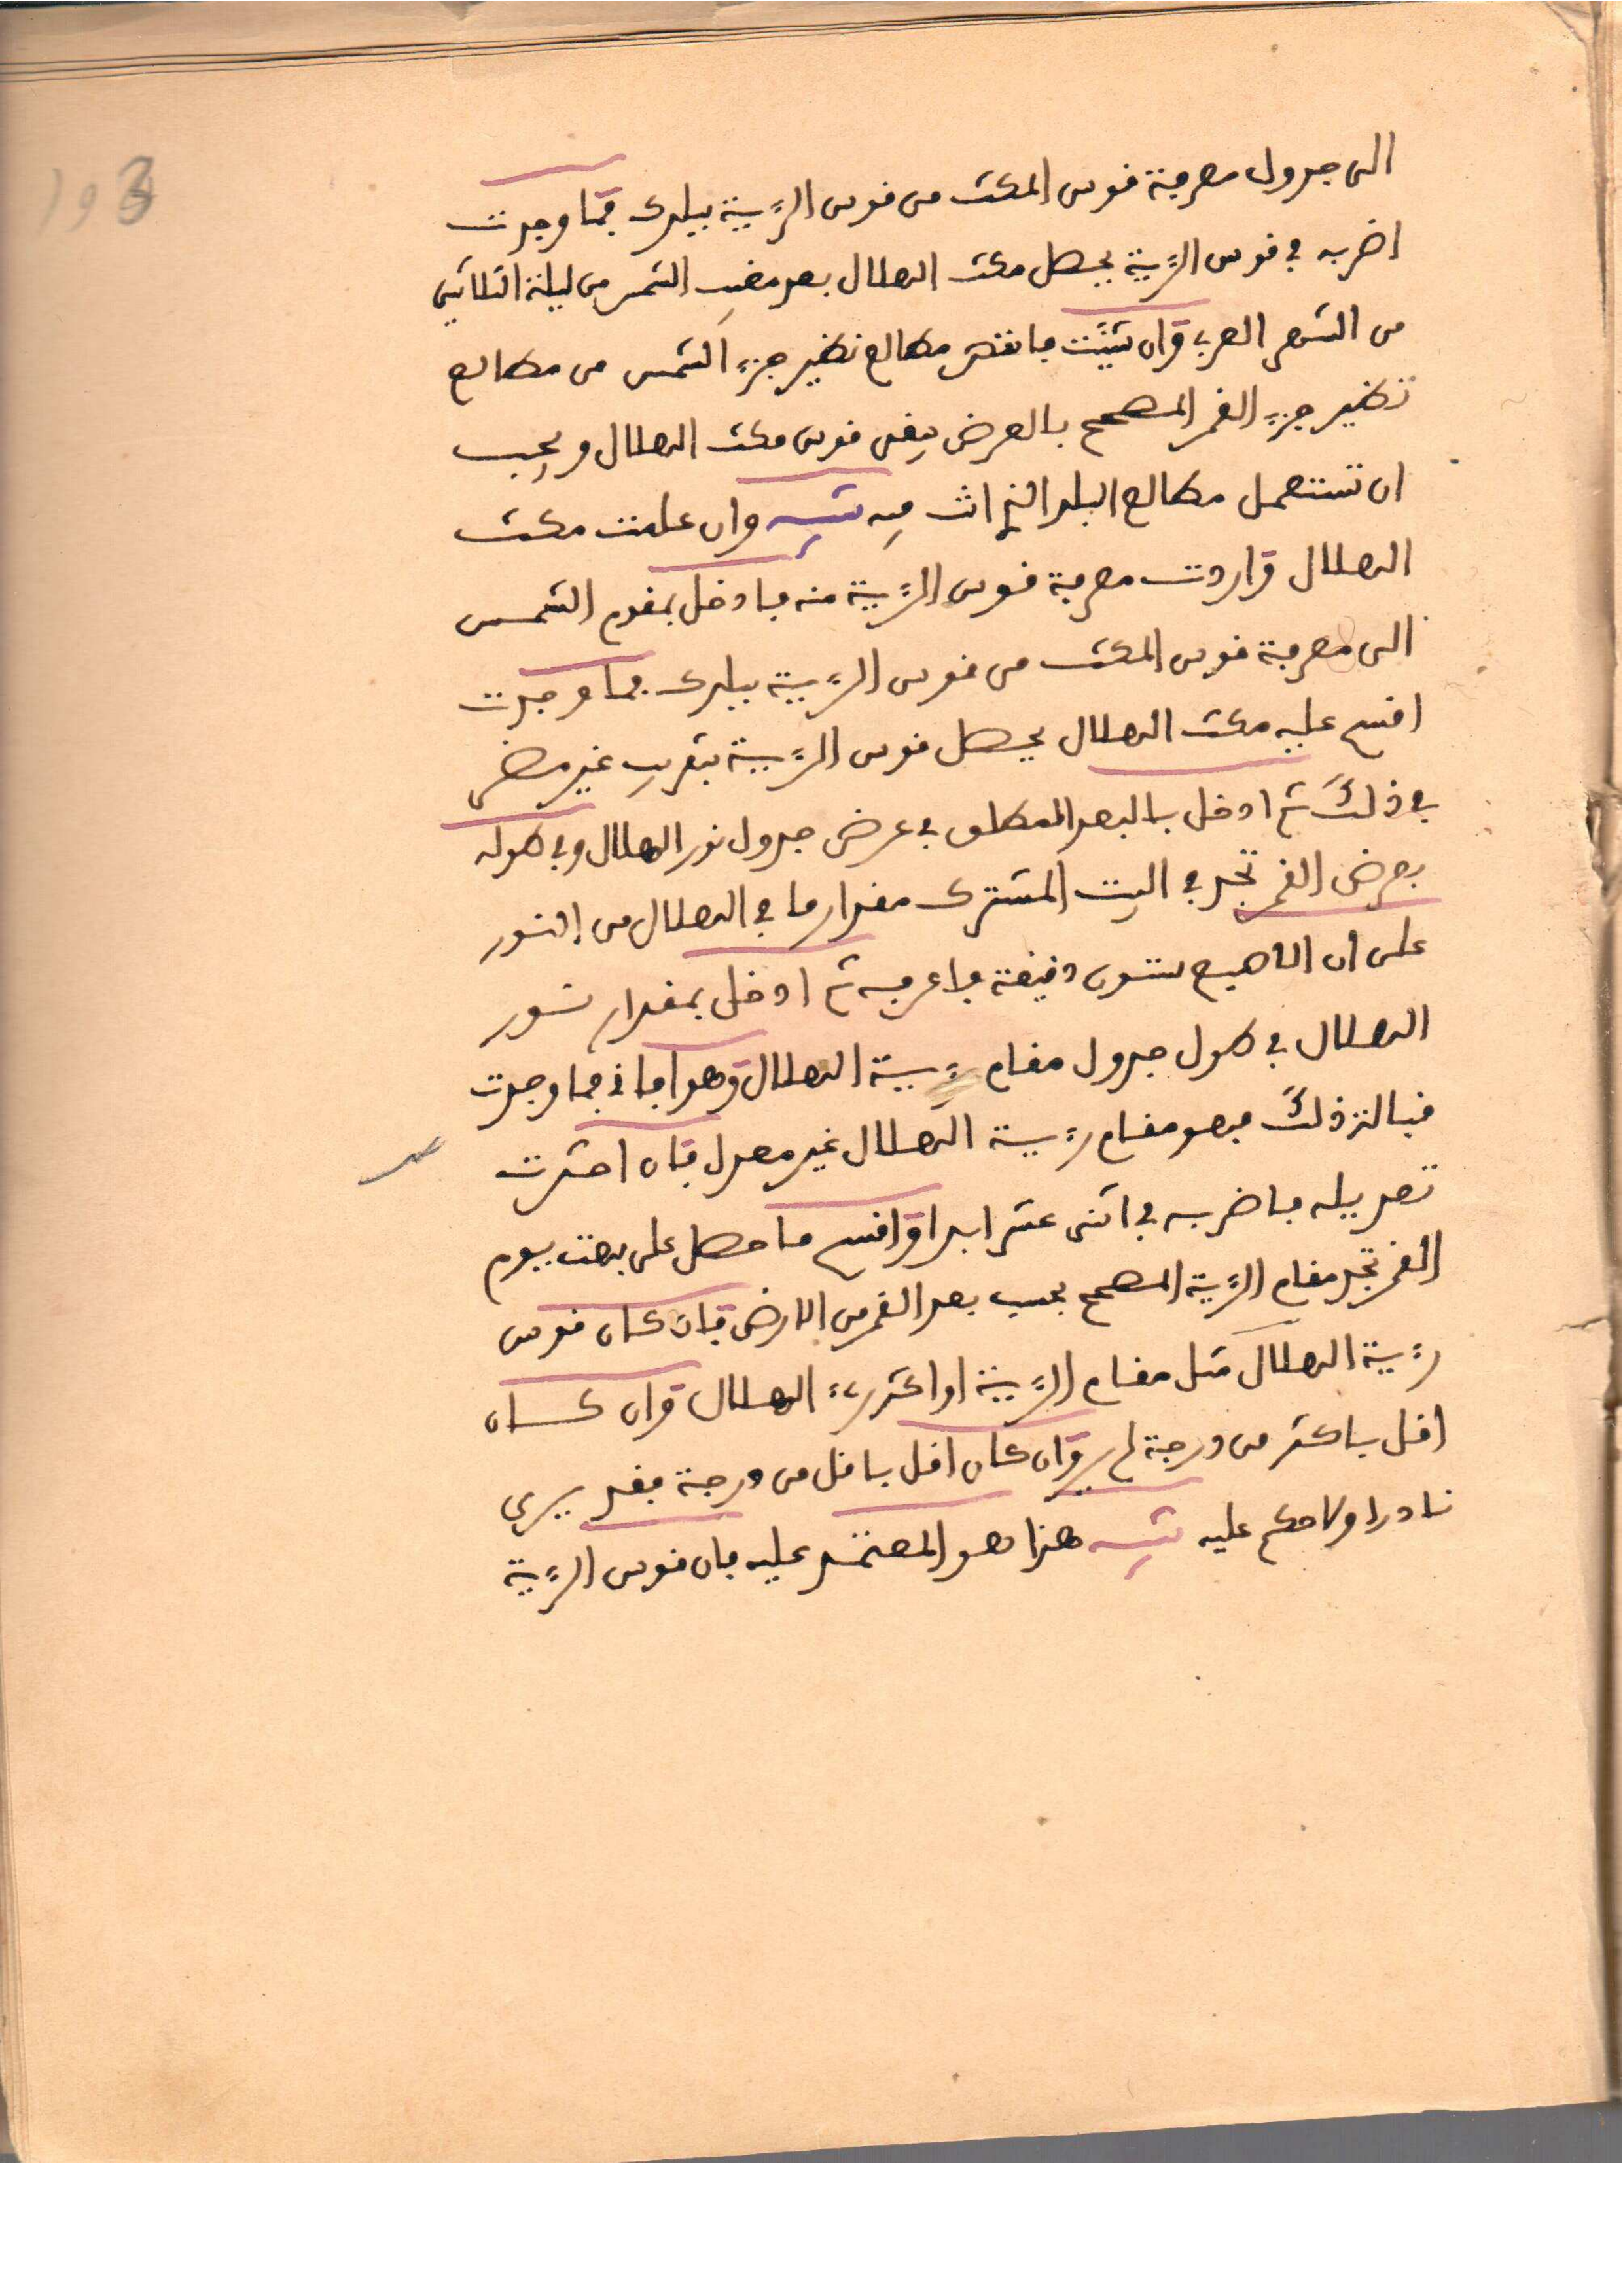 الى جدول معرفة قوس المكث من قوس الرءية ببلدك فما وجدت
اضربه في قوس الرءية يحصل مكث الهلال بعد مغيب الشمس من ليلة الثلاثين
من الشهر العربي وان شئت فانقص مطالع نظير جزء الشمس من مطالع
نظير جزء القمر المصحح بالعرض يبقى قوس مكث الهلال ويجب
ان تستعمل مطالع البلد الذي انت فيه تنبيه وان علمت مكث
الهلال واردت معرفة قوس الرءية منه فادخل بمقوم الشمس
الى معرفة قوس المكث من قوس الرءية ببلدك فما وجدت
اقسم عليه مكث الهلال يحصل قوس الرءية بتقريب غير مضر
في ذلك ثم ادخل بالبعد المطلق في عرض جدول نور الهلال وفي طوله
بعرض القمر تجد في البيت المشترك مقدار ما في الهلال من النور
على ان الاصبع ستون دقيقة فاعرفه ثم ادخل بمقدار نور
الهلال في طول جدول مقام رءية الهلال وهو افاقي فما وجدت
قبالة ذلك فهو مقام رءية الهلال غير معدل فان احترت
تعديله فاضربه في اثنى عشر ابدا واقسم ما حصل على بهت يوم
القمر تجد مقام الرءية المصحح بحسب بعد القمر من الارض فان كان قوس
رءية الهلال مثل مقام الرءية او اكثر رءي الهلال وان كان
اقل باكثر من درجة لم ير وان كان اقل باقل من درجة فقد يرى
نادرا ولا حكم عليه تنبيه هذا هو المعتمد عليه فان قوس الرءية